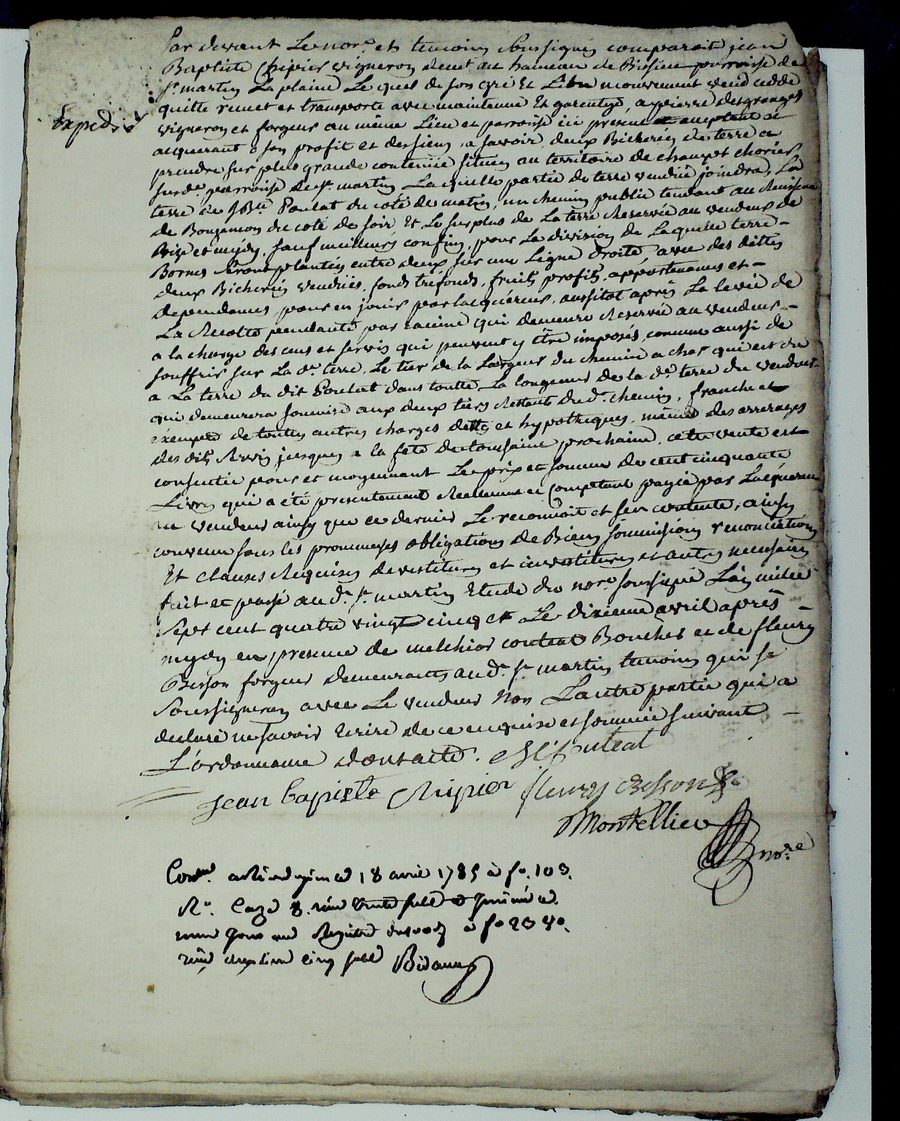 Par devant le nore. et temoins soussignés comparait jean
Baptiste Chipier vigneron demt. au hameau de Bissieu parroisse de
st. martin La plaine Le quel de son gré Et Libre mouvement vend cedde
Expedié
quitte remet et transporte avec maintenue Et garentye, a pierre desgranges
vigneron et forgeur au même Lieu et parroisse ici present acceptant et
acquerant a son profit et des siens, a savoir deux Bicherées de terre a
prendre sur plus grande contenüe situées au territoire de
susde. parroisse de st. martin La quelle partie de terre vendüe joindra, La
terre de Jbte. Poulat du coté de matin, un chemin public tendant au
de Bonjamon du coté de soir Et Le surplus de La terre Reservée au vendeur de
Bize et midy, sauf meilleurs confins, pour La division de Laquelle terre
Bornes seront plantées entre deux sur une Ligne droite, avec des dittes
deux Bicherées vendües, fonds tréfonds, fruits profits, appartenances et
dependances, pour en jouir par lacquereur, aussitot après La levée de
La Recolte pendante par racine qui demeure Reservée au vendeur
a la charge des cens et servis qui peuvent y être imposés comme aussi de
souffrir sur La de. terre, Le tier de la Largeur du chemin a char qui est du
a La terre du dit Poulat dans toutte La longueur de la de. terre du vendeur
qui demeurera soumise aux deux tiers Restants dud. chemin, franche et
exempte de toutes autres charges dettes et hypotheques, même des arrerages
des dits servis jusques a la fete de toussaint prochaine, cette vente est
consentie pour et moyennant Le prix et somme de cent cinquante
Livres qui a été presentement Reellement et comptant payée par Lacquereur
au vendeur ainsy que ce dernier Le reconnoit et s'en contente, ainsy
convenu sous les prommesses obligations de Biens soumissions renonciations
Et clauses Requises devestitures et investitures et autres necessaires
fait et passé aud. st. martin Etude du nore. soussigné L'an mil
sept cent quatre vingt cinq et Le dixieme avril après
midy en presence de melchior couteat Boucher et de fleury
Bisson forgeur demeurants aud. st. martin temoins qui se
soussigneront avec Le vendeur Non L'autre partie qui a
declaré ne savoir Ecrire de ce enquise et sommée suivant
L'ordonnance dont acte.
jean baptiste Chipier fleury Besson
Montellier nore
Conllé. a Rivedegier Le 18 avril 1785 à fo. 103.
Ro. Caze 8. reçu
même jour au Registre à fo 23 Vo.
reçu cinq sols